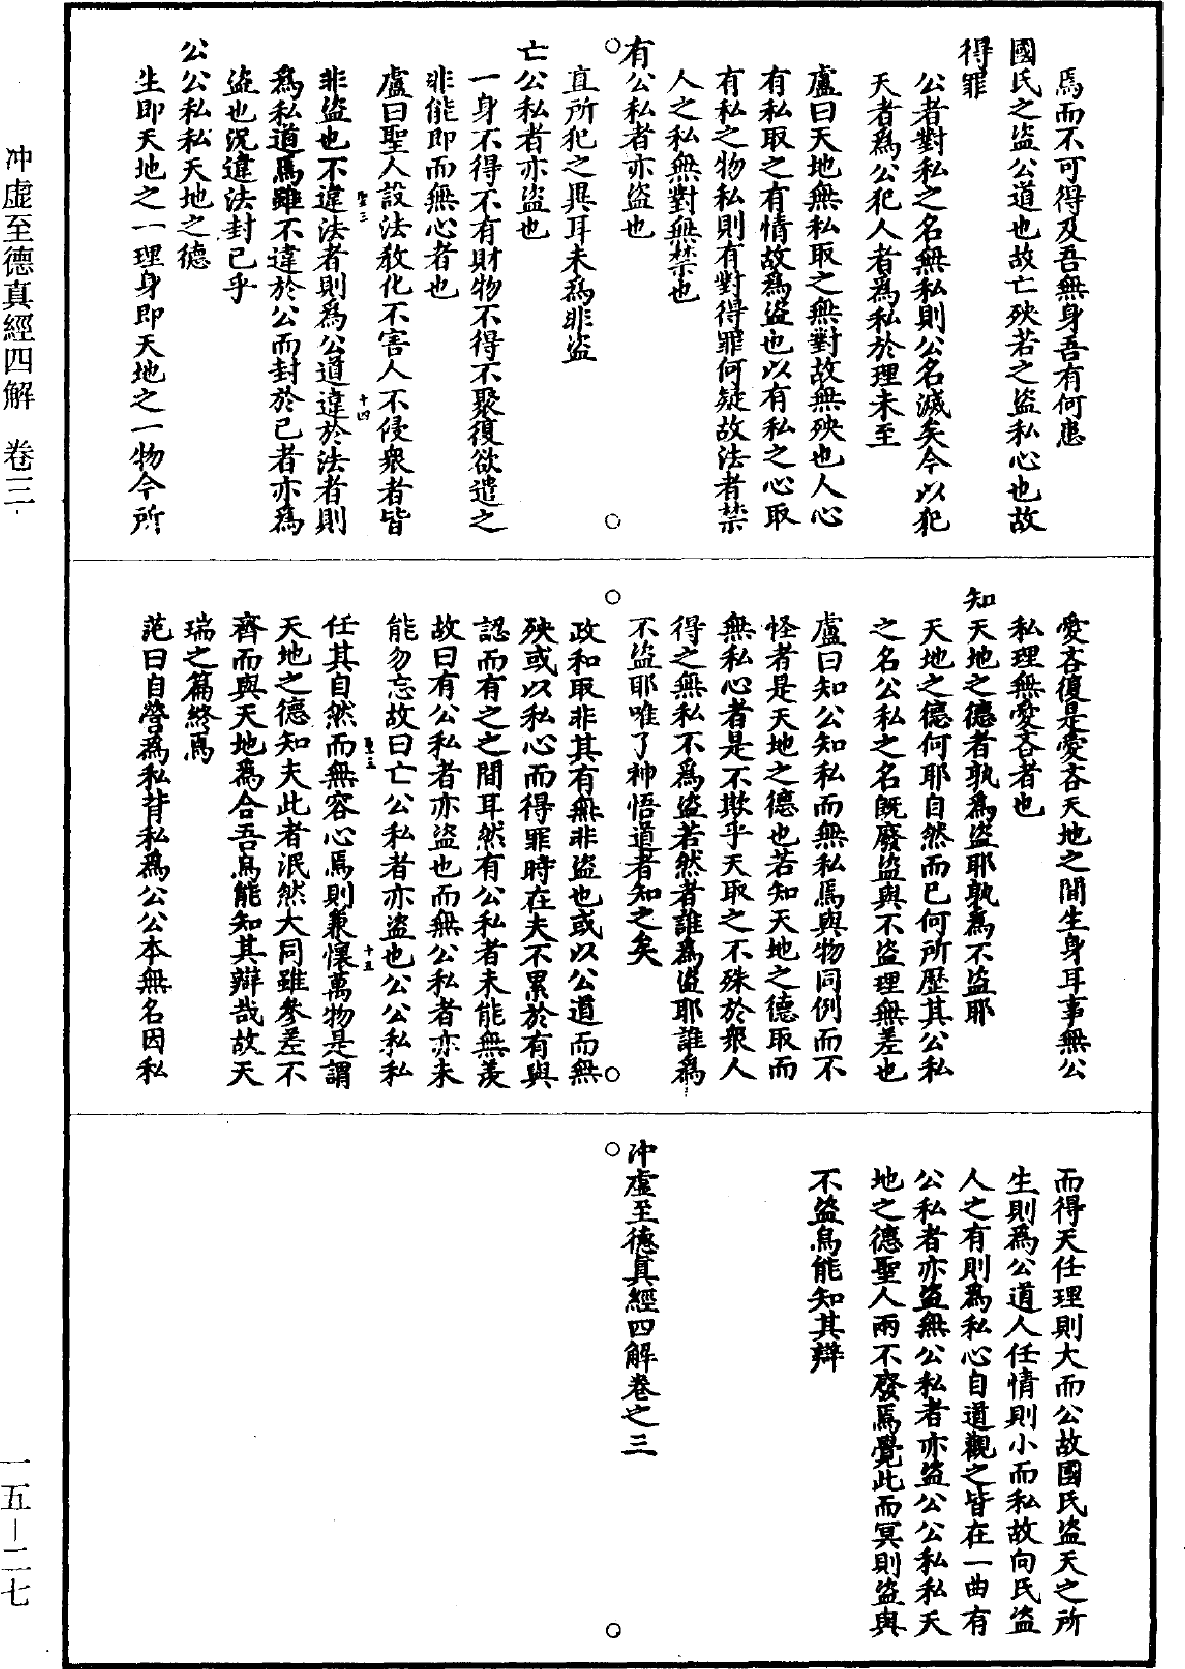 焉而不可得及吾無身吾有何患
國氏之盜公道也故亡殃若之盜私心也故
得罪
公者對私之名無私則公名滅矣今以犯
天者為公犯人者為私於理未至
盧曰天地無私取之無對故無殃也人心
有私取之有情故為盜也以有私之心取
有私之物私則有對得罪何疑故法者禁
人之私無對無禁也
有公私者亦盜也
直所犯之異耳未為非盜
亡公私者亦盜也
一身不得不有財物不得不聚復欲遣之
非能即而無心者也
盧曰聖人設法教化不害人不侵眾者皆
非盜也不違法者則為公道違於法者則
為私道焉雖不違於公而封於己者亦為
盜也況違法封己乎
公公私私天地之德
生即天地之一理身即天地之一物今所
愛吝復是愛吝天地之間生身耳事無公
私理無愛吝者也
知天地之德者孰為盜耶孰為不盜耶
天地之德何耶自然而已何所歷其公私
之名公私之名既廢盜與不盜理無差也
盧曰知公知私而無私焉與物同例而不
怪者是天地之德也若知天地之德取而
無私心者是不欺乎天取之不殊於眾人
得之無私不為盜若然者誰為盜耶誰為
不盜耶唯了神悟道者知之矣
政和取非其有無非盜也或以公道而無
殃或以私心而得罪時在夫不累於有與
認而有之之間耳然有公私者未能無羨
故曰有公私者亦盜也而無公私者亦未
能勿忘故曰亡公私者亦盜也公公私私
任其自然而無容心焉則兼懷萬物是謂
天地之德知夫此者泯然大同雖參差不
齊而與天地為合吾烏能知其辯哉故天
瑞之篇終焉
范曰自營為私背私為公公本無名因私
而得天任理則大而公故國氏盜天之所
生則為公道人任情則小而私故向氏盜
人之有則為私心自道觀之皆在一曲有
公私者亦盜無公私者亦盜公公私私天
地之德聖人兩不廢焉覺此而冥則盜與
不盜烏能知其辯
冲虛至德真經四解卷之三
冲虛至德真經四解 卷三
一五—二七